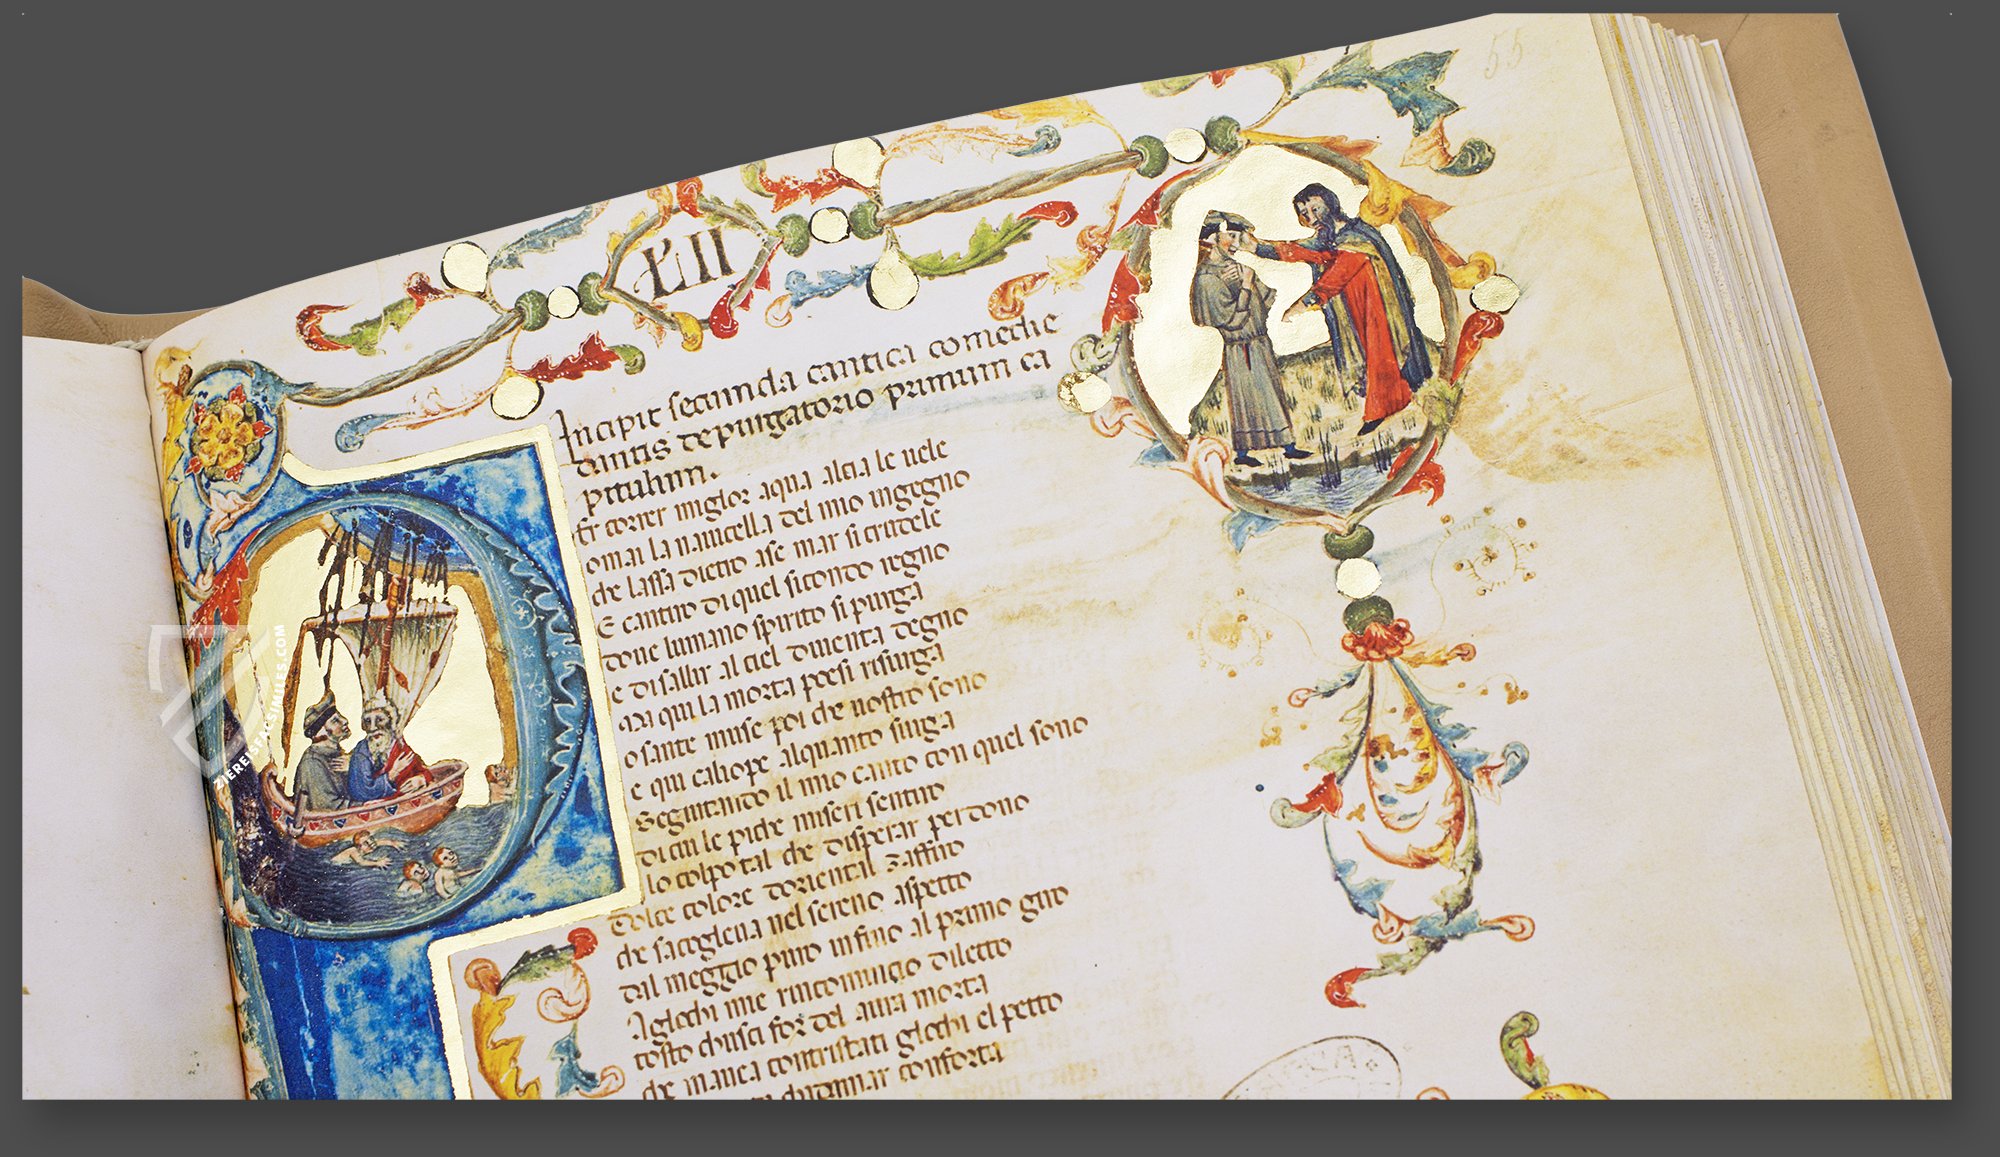 55
L'II
Incipit secunda cantica comedie
dantis de purgatorio primum ca
pitulum.
Er correr miglor aqua alcia le uele
omai la nauicella del mio ingegno
che lassa dietro a se mar si crudele
E cantiro di quel sicondo regno
doue lumano spirito si purga
e di sallir al ciel diuenta degno
Ma qui la morta poesi risurga
o sante muse poi che uostro sono
e qui caliope alquanto surga
Seguitando il mio canto con quel sono
di cui le piche miseri sentiro
lo colpo tal che disperar perdono
Dolce colore doriental zaffiro
che sacoglieua nel sereno aspetto
dal meggio puro infino al primo giro
Agliochi mie rincominicio diletto
tosto chusci for del aura morta
che mauea contristati gliochi el petto
conforta
ZIEREISFACSIMILES.COM